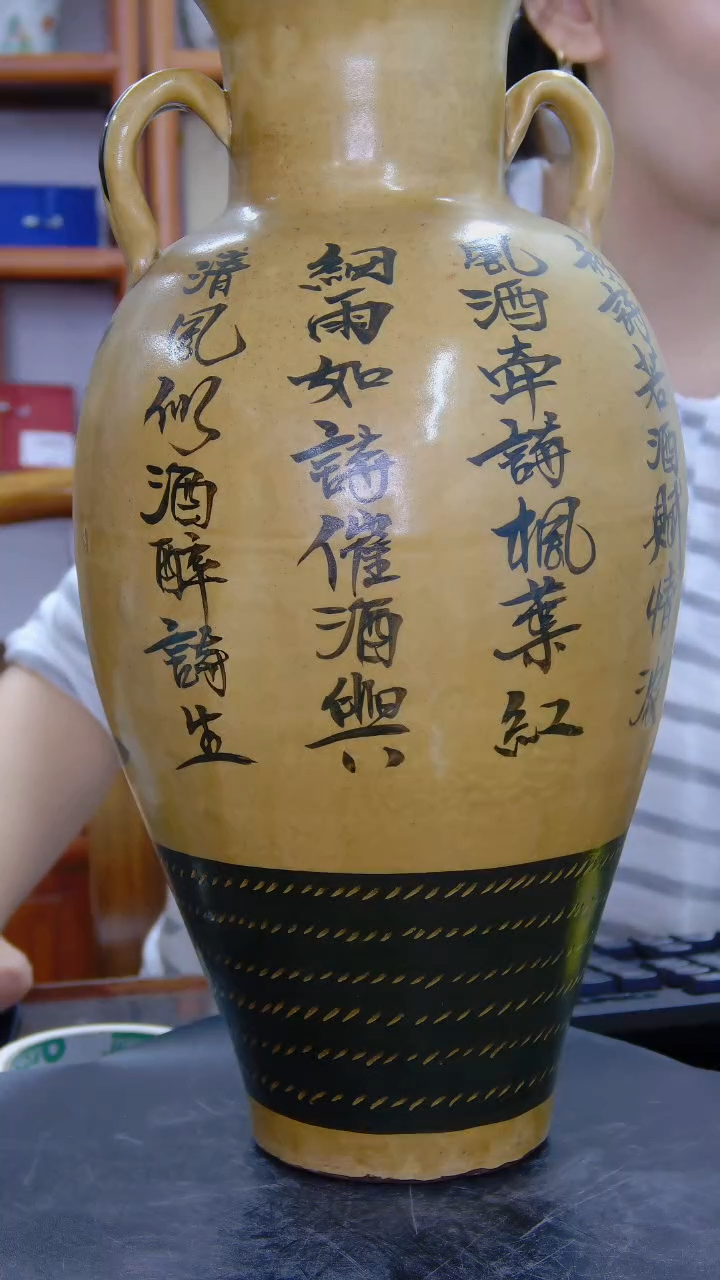 詩若酒賦情濃
風酒牽詩楓葉紅
細雨如詩催酒興
清風似酒醉詩生